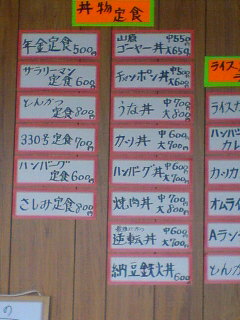 丼物
定食
年金定食500円
サラリーマン
定食600円
とんかつ
定食800円
330号定食700円
ハンバーグ
定食600円
さしみ定食800円
山原
ゴーヤー丼
中550
大650
チャンポン丼
中500
大600
うな丼
中700
大800
カツ丼
中600
大700
ハンバーグ丼
中600
大700
焼肉丼
中700
大800
逆転丼
中600
大700
納豆鉄火丼600
ライス
ライスカ
ハンバ
カレ
カツカ
オムライ
Aラン
の